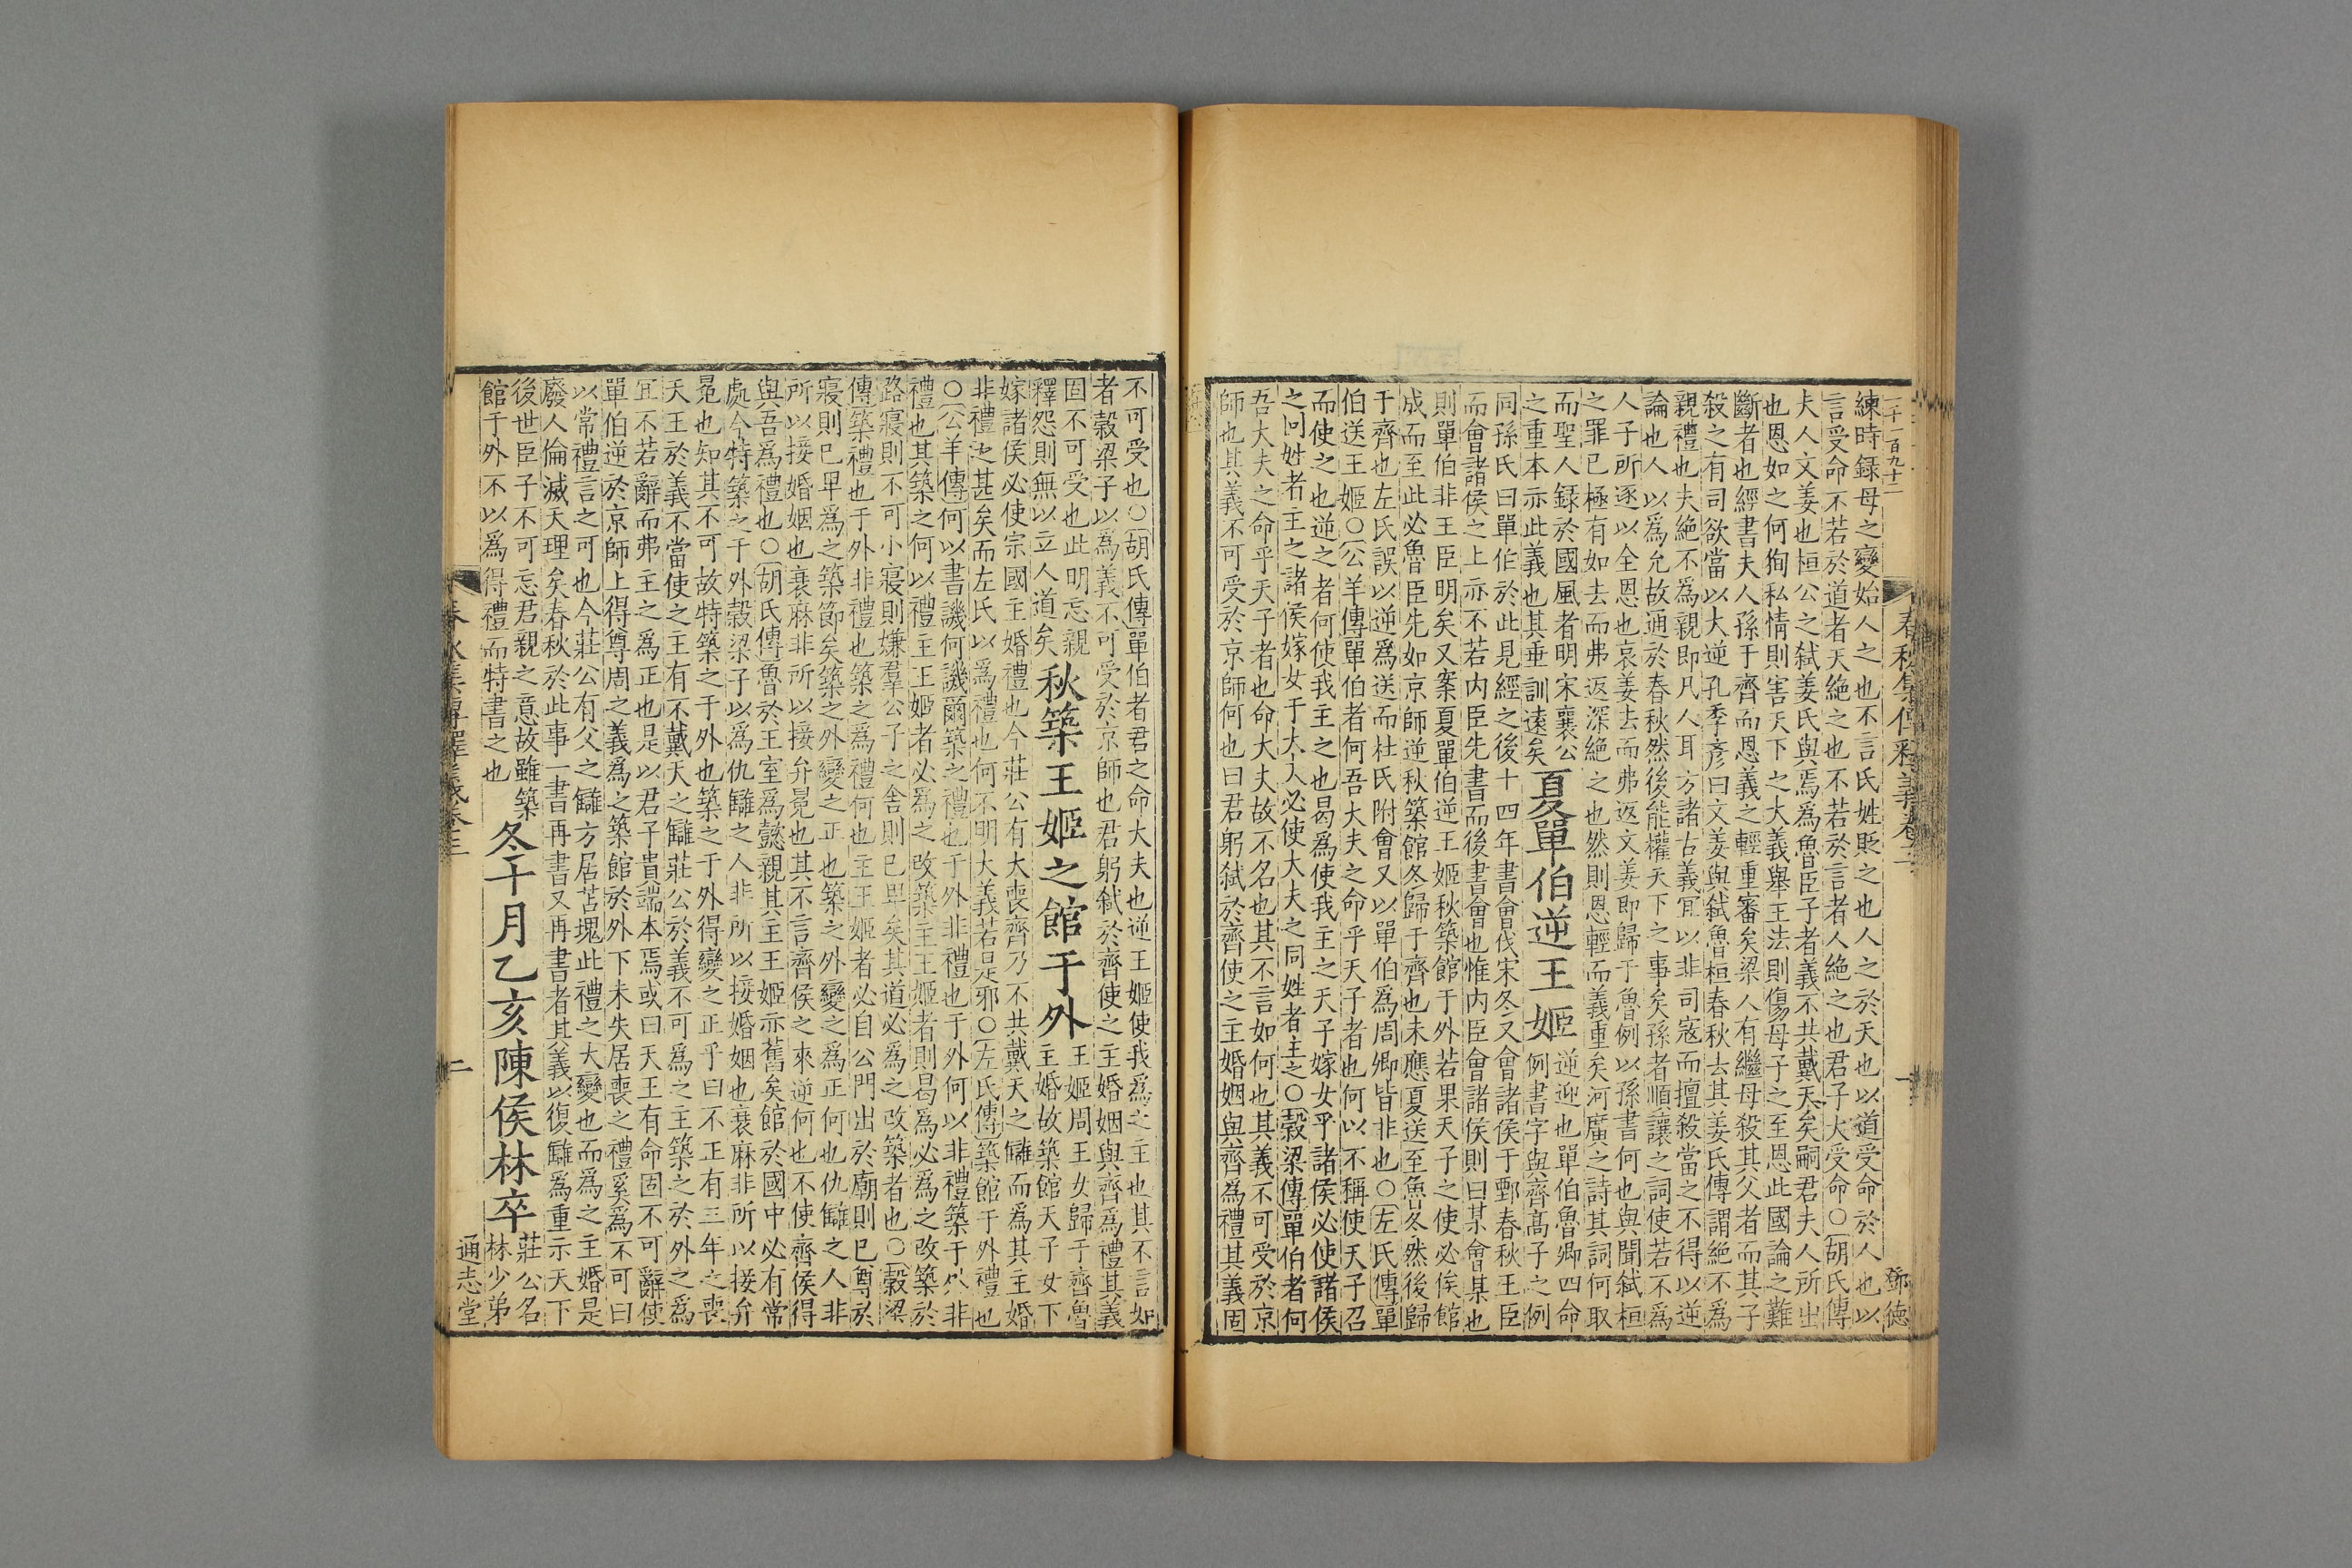 二千一百九十二
春秋集傳釋義卷三
一
鄧德
練時録母之變始人之也不言氏姓貶之也人之於天也以道受命於人也以
言受命不若於道者天絶之也不若於言者人絶之也君子大受命○胡氏傳
夫人文姜也桓公之弑姜氏與焉爲魯臣子者義不共戴天矣嗣君夫人所出
也恩如之何徇私情則害天下之大義舉王法則傷母子之至恩此國論之難
斷者也經書夫人孫于齊而恩義之輕重審矣梁人有繼母殺其父者而其子
殺之有司欲當以大逆孔季彦曰文姜與弑魯桓春秋去其姜氏傳謂絶不爲
親禮也夫絶不爲親即凡人耳方諸古義冝以非司寇而擅殺當之不得以逆
論也人以爲允故通於春秋然後能權天下之事矣孫者順讓之詞使若不爲
人子所逐以全恩也哀姜去而弗返文姜即歸于魯例以孫書何也與聞弑桓
之罪已極有如去而弗返深絶之也然則恩輕而義重矣河廣之詩其詞何取
而聖人録於國風者明宋襄公
之重本亦此義也其垂訓遠矣
夏單伯逆王姬
逆迎也單伯魯卿四命
例書字與齊髙子之例
同孫氏曰單伯於此見經之後十四年書會伐宋冬又會諸侯于鄄春秋王臣
而會諸侯之上亦不若内臣先書而後書會也惟内臣會諸侯則曰某會某也
則單伯非王臣明矣又案夏單伯逆王姬秋築館于外若果天子之使必俟館
成而至此必魯臣先如京師逆秋築館冬歸于齊也未應夏送至魯冬然後歸
于齊也左氏誤以逆爲送而杜氏附會又以單伯爲周卿皆非也○左氏傳單
伯送王姬○公羊傳單伯者何吾大夫之命乎天子者也何以不稱使天子召
而使之也逆之者何使我主之也曷爲使我主之天子嫁女乎諸侯必使諸侯
之同姓者主之諸侯嫁女于大夫必使大夫之同姓者主之○穀梁傳單伯者何
吾大夫之命乎天子者也命大夫故不名也其不言如何也其義不可受於京
師也其義不可受於京師何也曰君躬弑於齊使之主婚姻與齊爲禮其義固
不可受也○胡氏傳單伯者君之命大夫也逆王姬使我爲之主也其不言如
者穀梁子以爲義不可受於京師也君躬弑於齊使之主婚姻與齊爲禮其義
固不可受也此明忘親
釋怨則無以立人道矣
秋築王姬之館于外
王姬周王女歸于齊魯
主婚故築館天子女下
嫁諸侯必使宗國主婚禮也今莊公有大喪齊乃不共戴天之讎而爲其主婚
非禮之甚矣而左氏以爲禮也何不明大義若是邪○左氏傳築館于外禮也
○公羊傳何以書譏何譏爾築之禮也于外非禮也于外何以非禮築于外非
禮也其築之何以禮主王姬者必爲之改築主王姬者則曷爲必爲之改築於
路寢則不可小寢則嫌羣公子之舍則已卑矣其道必爲之改築者也○穀梁
傳築禮也于外非禮也築之爲禮何也主王姬者必自公門出於廟則已尊於
寢則已卑爲之築節矣築之外變之正也築之外變之爲正何也仇讎之人非
所以接婚姻也衰麻非所以接弁冕也其不言齊侯之來逆何也不使齊侯得
與吾爲禮也○胡氏傳魯於王室爲懿親其主王姬亦舊矣館於國中必有常
處今特築之于外穀梁子以爲仇讎之人非所以接婚姻也衰麻非所以接弁
冕也知其不可故特築之于外也築之于外得變之正乎曰不正有三年之喪
天王於義不當使之主有不戴天之讎莊公於義不可爲之主築之於外之爲
冝不若辭而弗主之爲正也是以君子貴端本焉或曰天王有命固不可辭使
單伯逆於京師上得尊周之義爲之築館於外下未失居喪之禮奚爲不可曰
以常禮言之可也今莊公有父之讎方居苫塊此禮之大變也而爲之主婚是
廢人倫滅天理矣春秋於此事一書再書又再書者其義以復讎爲重示天下
後世臣子不可忘君親之意故雖築
館于外不以爲得禮而特書之也
冬十月乙亥陳侯林卒
莊公名
林少弟
春秋集傳釋義卷三
二
通志堂